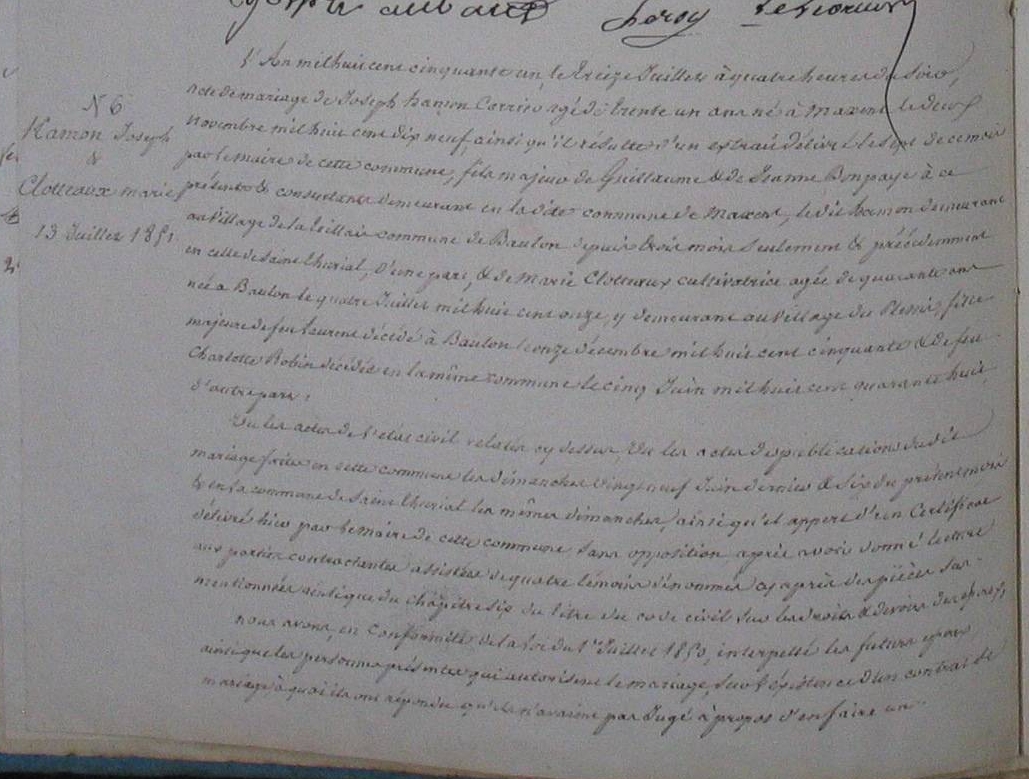 Leroy
L'An mil huit cent cinquante un, le treize Juillet à quatre heures du soir,
N 6
acte de mariage de Joseph hamon Carrier agé de trente un ans né à Maxent le deux
Kamon Joseph
&
Clotteaux marie
13 Juillet 1851
Novembre mil huit cent dix neuf ainsi qu'il résulte d'un extrait délivré le sept de ce mois
par le maire de cette commune, fils majeur de Guillaume & de Jeanne Bonpaye à ce
présents & consentants demeurant en la dite commune de Maxent, le dit hamon demeurant
au village de la commune de Baulon depuis trois mois seulement & précédemment
en celle de Saint thurial, d'une part, & de Marie Clotteaux cultivatrice agée de quarante ans
née à Baulon le quatre Juillet mil huit cent onze, y demeurant au village du Plessis, fille
majeure de feu Laurent décédé à Baulon le onze décembre mil huit cent cinquante & de feu
Charlotte Robin décédée en la même commune le cinq Juin mil huit cent quarante huit,
d'autre part.
Vu les actes de l'état civil relatés cy dessus, Vu les actes de publications du dit
mariage faites en cette commune les dimanches vingt neuf Juin dernier & six du présent mois
& en la commune de Saint thurial les mêmes dimanches, ainsi qu'il appert d'un Certificat
délivré hier par le maire de cette commune sans opposition, après avoir donné lecture
aux parties contractantes assistées de quatre témoins dénommés cy après des pièces sus-
mentionnées ainsi que du chapitre six du titre du code civil sur les droits & devoirs des époux,
nous avons, en conformité de la loi du 1er Juillet 1850, interpellé les futurs époux
ainsi que les personnes présentes qui autorisent le mariage, sur l'existence d'un contrat de
mariage à quoi ils ont répondu qu'ils n'avaient pas Jugé à propos d'en faire un